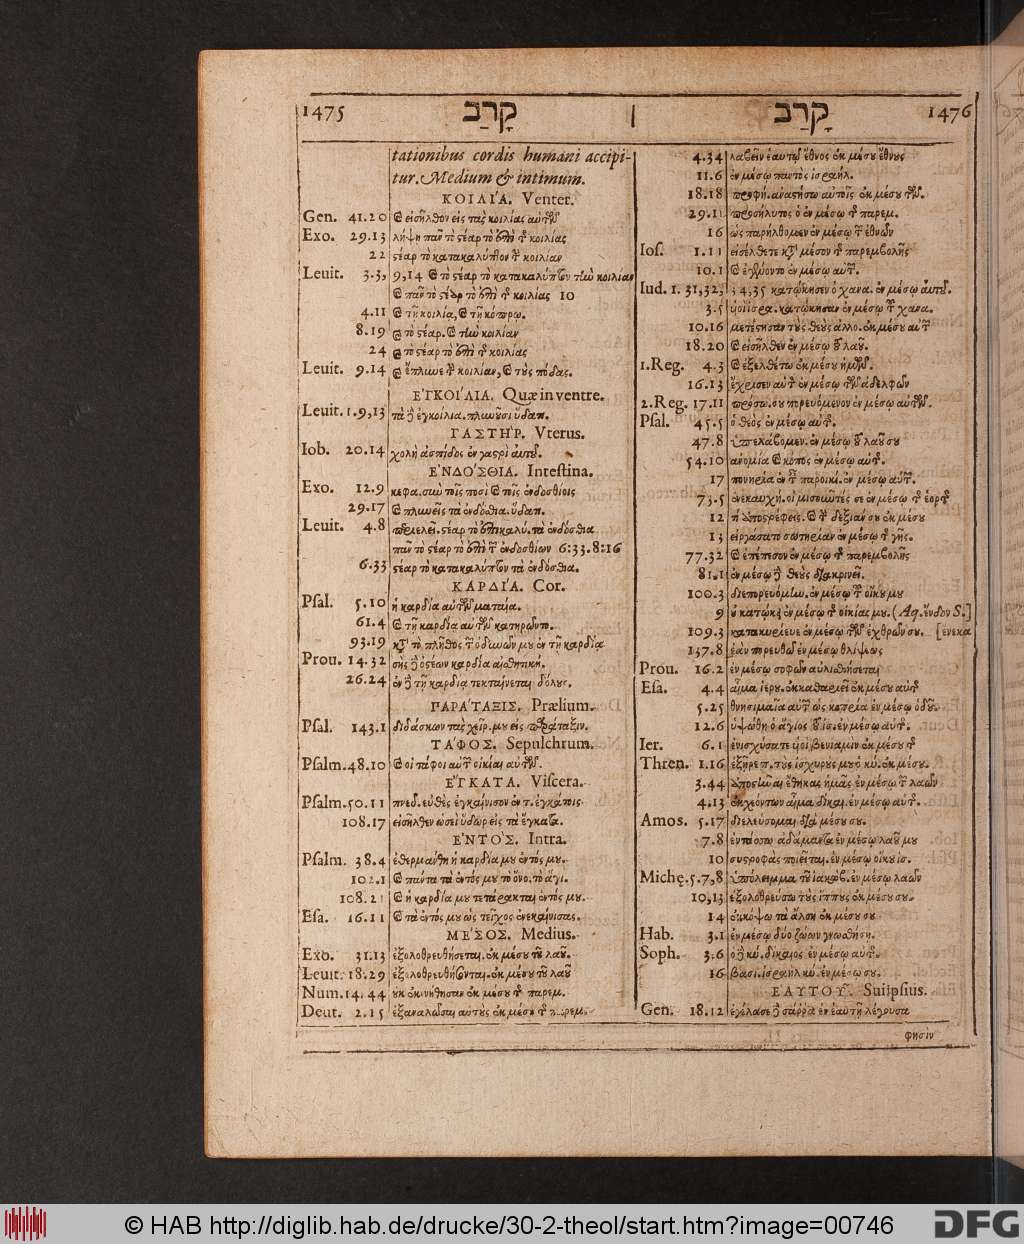 1475 קָרַב קָרַב 1476
tationibus cordis humani accipi-
tur. Medium & intimum.
ΚΟΙΛΙΆ. Venter.
Gen. 41.20 εἰσῆλθον εἰς τὰς κοιλίας αὐτῶν
Exo. 29.13 λήψῃ πᾶν τὸ στέαρ τὸ ἐπὶ τῆς κοιλίας
22 στέαρ τὸ κατακαλύπτον τὴν κοιλίαν
Leuit. 3.3, 9,14 καὶ τὸ στέαρ τὸ κατακαλύπτον τὴν κοιλίαν
καὶ πᾶν τὸ στέαρ τὸ ἐπὶ τῆς κοιλίας 10
4.11 καὶ τῇ κοιλίᾳ, καὶ τῇ κόπρῳ.
8.19 καὶ τὸ στέαρ. καὶ τὴν κοιλίαν
24 καὶ τὸ στέαρ τὸ ἐπὶ τῆς κοιλίας
Leuit. 9.14 καὶ ἔπλυνε τὴν κοιλίαν, καὶ τοὺς πόδας.
ΕΓΚΟΙΛΙΑ. Quæ in ventre.
Leuit. 1.9,13 τὰ δὲ ἐγκοίλια. πλυνοῦσι ὕδατ.
ΓΑΣΤΗΡ. Vterus.
Iob. 20.14 χολὴ ἀσπίδος ἐν γαστρὶ αὐτοῦ.
ΕΝΔΟΣΘΙΑ. Intestina.
Exo. 12.9 κεφα. σὺν τοῖς ποσὶ καὶ τοῖς ἐνδοσθίοις
29.17 καὶ πλυνεῖς τὰ ἐνδόσθια. ὕδατ.
Leuit. 4.8 στέαρ τὸ ἐπικαλύ. τὰ ἐνδόσθια
πᾶν τὸ στέαρ τὸ ἐπὶ τῶν ἐνδοσθίων 6:33.8:16
6.33 στέαρ τὸ κατακαλύπτον τὰ ἐνδόσθια.
ΚΑΡΔΙΑ. Cor.
Psal. 5.10 ἡ καρδία αὐτῶν ματαία.
61.4 καὶ τῇ καρδίᾳ αὐτῶν κατηρῶντο.
93.19 κατὰ τὸ πλῆθος τῶν ὀδυνῶν μου ἐν τῇ καρδίᾳ
Prou. 14.32 σῆς δὲ ὀστέων καρδία αἰσθητική.
26.24 ἐν δὲ τῇ καρδίᾳ τεκταίνεται δόλους.
ΠΑΡΑΤΑΞΙΣ. Prælium.
Psal. 143.1 διδάσκων τὰς χεῖρ. μου εἰς παράταξιν.
ΤΑΦΟΣ. Sepulchrum.
Psalm. 48.10 καὶ οἱ τάφοι αὐτῶν οἰκίαι αὐτῶν.
ΕΓΚΑΤΑ. Viscera.
Psalm. 50.11 πνεῦ. εὐθὲς ἐγκαίνισον ἐν τ. ἐγκάτοις
108.17 εἰσῆλθεν ὡσεὶ ὕδωρ εἰς τὰ ἔγκατα.
ΕΝΤΟΣ. Intra.
Psalm. 38.4 ἐθερμάνθη ἡ καρδία μου ἐντός μου.
102.1 καὶ πάντα τὰ ἐντός μου τὸ ὄνο. τὸ ἅγι.
108.21 καὶ ἡ καρδία μου τετάρακται ἐντός μου.
Esa. 16.11 καὶ τὰ ἐντός μου ὡς τεῖχος ἐνεκαίνισας.
ΜΕΣΟΣ. Medius.
Exo. 31.13 ἐξολοθρευθήσεται. ἐκ μέσου τοῦ λαοῦ.
Leuit. 18.29 ἐξολοθρευθήσονται. ἐκ μέσου τοῦ λαοῦ
Num. 14.44 οὐκ ἐκινήθησαν ἐκ μέσου τῆς παρεμ.
Deut. 2.15 ἐξαναλῶσαι αὐτοὺς ἐκ μέσου τῆς παρεμ.
4.34 λαβεῖν ἑαυτῷ ἔθνος ἐκ μέσου ἔθνους
11.6 ἐν μέσῳ παντὸς ἰσραήλ.
18.18 προφή. ἀναστήσω αὐτοῖς ἐκ μέσου τῶν.
29.11 προσήλυτος ὁ ἐν μέσῳ τῆς παρεμ.
16 ὡς παρήλθομεν ἐν μέσῳ τῶν ἐθνῶν
Ios. 1.11 εἰσέλθετε κατὰ μέσον τῆς παρεμβολῆς
10.1 καὶ ἐγένοντο ἐν μέσῳ αὐτῶν.
Iud. 1. 31,32, 34,35 κατῴκησεν ὁ χανα. ἐν μέσῳ αὐτοῦ.
3.5 υἱοὶ ἰσρα. κατῴκησαν ἐν μέσῳ τοῦ χανα.
10.16 μετέστησαν τοὺς θεοὺς ἀλλο. ἐκ μέσου αὐτῶν
18.20 καὶ εἰσῆλθεν ἐν μέσῳ τοῦ λαοῦ.
1.Reg. 4.3 καὶ ἐξελθέτω ἐκ μέσου ἡμῶν.
16.13 ἔχρισεν αὐτὸν ἐν μέσῳ τῶν ἀδελφῶν
2.Reg. 17.11 πρόσω. σου πορευόμενον ἐν μέσῳ αὐτῶν.
Psal. 45.5 ὁ θεὸς ἐν μέσῳ αὐτῆς.
47.8 ὑπελάβομεν. ἐν μέσῳ τοῦ λαοῦ σου
54.10 ἀνομία καὶ κόπος ἐν μέσῳ αὐτῆς.
17 πονηρία ἐν ταῖς παροικί. ἐν μέσῳ αὐτῶν.
73.5 ἐνεκαυχή. οἱ μισοῦντές σε ἐν μέσῳ τῆς ἑορτῆς
12 τί ἀποστρέφεις. καὶ τὴν δεξιάν σου ἐκ μέσου
13 εἰργάσατο σωτηρίαν ἐν μέσῳ τῆς γῆς.
77.32 καὶ ἐπέπεσον ἐν μέσῳ τῆς παρεμβολῆς
81.1 ἐν μέσῳ δὲ θεοὺς διακρινεῖ.
100.3 διεπορευόμην. ἐν μέσῳ τοῦ οἴκου μου
9 οὐ κατῴκει ἐν μέσῳ τῆς οἰκίας μου. (Aq. ἔνδον S.]
109.3 κατακυρίευε ἐν μέσῳ τῶν ἐχθρῶν σου. [ἕνεκα
137.8 ἐὰν πορευθῶ ἐν μέσῳ θλίψεως
Prou. 16.2 ἐν μέσῳ σοφῶν αὐλισθήσεται
Esa. 4.4 αἷμα ἱερου. ἐκκαθαριεῖ ἐκ μέσου αὐτῶν
5.25 θνησιμαῖα αὐτῶν ὡς κοπρία ἐν μέσῳ ὁδοῦ.
12.6 ὑψώθη ὁ ἅγιος τοῦ ἰσ. ἐν μέσῳ αὐτῆς.
Ier. 6.1 ἐνισχύσατε υἱοὶ βενιαμὶν ἐκ μέσου τῆς
Thren. 1.16 ἐξῆρε π. τοὺς ἰσχυρούς μου ὁ κύ. ἐκ μέσου.
3.44 ἔθηκας ἡμᾶς ἐν μέσῳ τῶν λαῶν
4.13 ἐκχεόντων αἷμα δίκαι. ἐν μέσῳ αὐτῆς.
Amos. 5.17 διελεύσομαι διὰ μέσου σου.
7.8 ἐντάσσω ἀδάμαντα ἐν μέσῳ λαοῦ μου
10 συστροφὰς ποιεῖται. ἐν μέσῳ οἴκου ἰσ.
Michę. 5.7,8 ὑπόλειμμα τοῦ ἰακώβ. ἐν μέσῳ λαῶν
10,13 ἐξολοθρεύσω τοὺς ἵππους ἐκ μέσου σου.
14 ἐκκόψω τὰ ἄλση ἐκ μέσου σου
Hab. 3.1 ἐν μέσῳ δύο ζώων γνωσθήσῃ.
Soph. 3.6 ὁ δὲ κύ. δίκαιος ἐν μέσῳ αὐτῆς.
16 βασι. ἰσραὴλ κύ. ἐν μέσῳ σου.
ΕΑΥΤΟΥ. Suiipsius.
Gen. 18.12 ἐγέλασε δὲ σάρρα ἐν ἑαυτῇ λέγουσα
φησιν
© HAB http://diglib.hab.de/drucke/30-2-theol/start.htm?image=00746 DFG